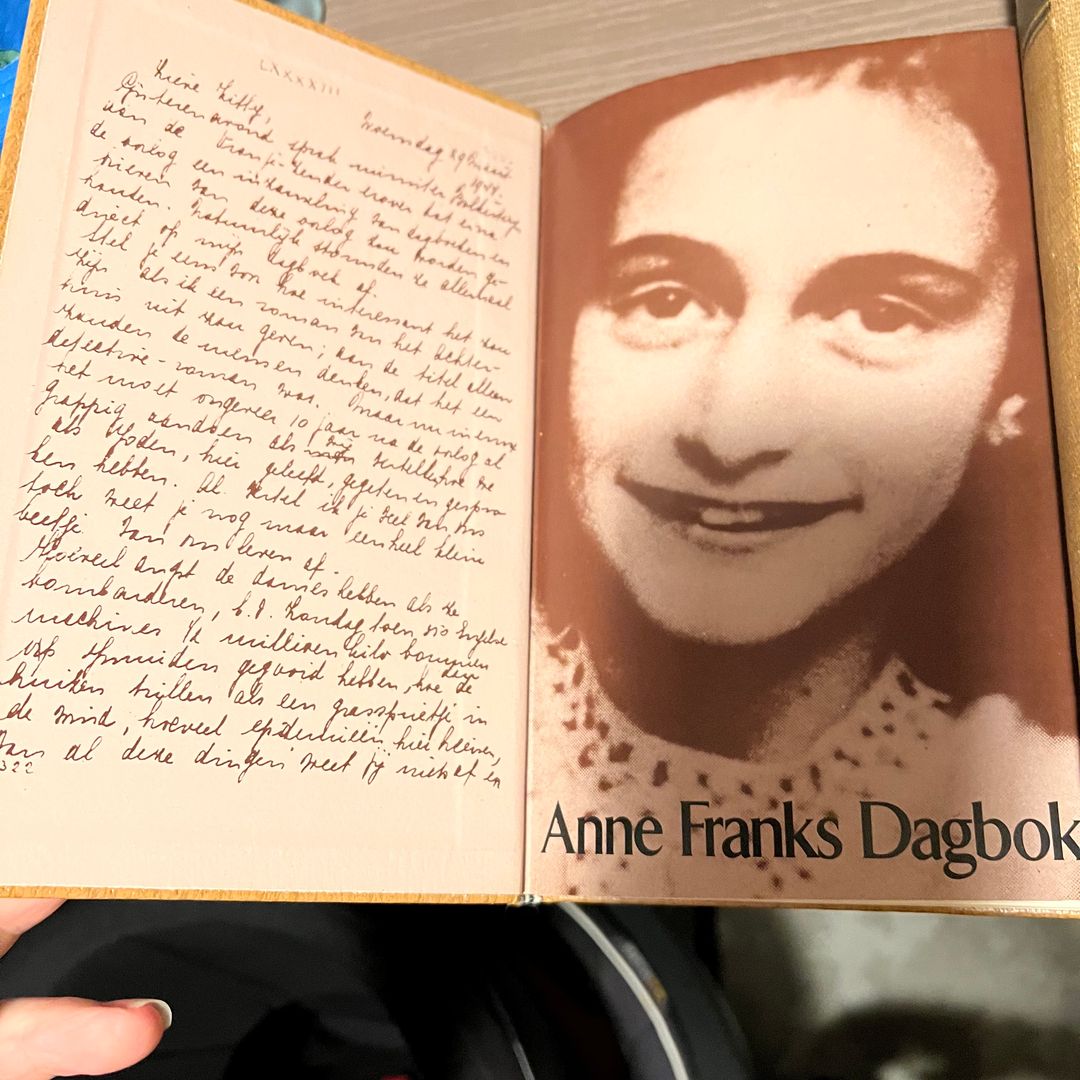 LXXXXIII
Lieve Kitty,
Woensdag 29 Maart
1944.
Gisterenavond sprak minister Bolkestein
aan de Oranje zender erover dat er na
de oorlog een inzameling van dagboeken en
brieven van deze oorlog zou worden ge-
houden. Natuurlijk stormden ze allemaal
direct op mijn dagboek af.
Stel je eens voor hoe interessant het zou
zijn als ik een roman van het Achter-
huis uit zou geven; aan de titel alleen
zouden de mensen denken, dat het een
detective-roman was. Maar nu in ernst
het moet ongeveer 10 jaar na de oorlog al
grappig aandoen als wij vertellen hoe we
als Joden, hier geleefd, gegeten en gespro
ken hebben. Al vertel ik je veel van ons
toch weet je nog maar een heel klein
beetje van ons leven af.
Hoeveel angst de dames hebben als ze
bombarderen, b.v. Zondag toen 350 Engelse
machines ½ millioen kilo bommen
op Ijmuiden gegooid hebben, hoe dan de
huizen trillen als een grassprietje in
de wind, hoeveel epidemieën hier heersen,
van al deze dingen weet jij niets af en
322
Anne Franks Dagbok